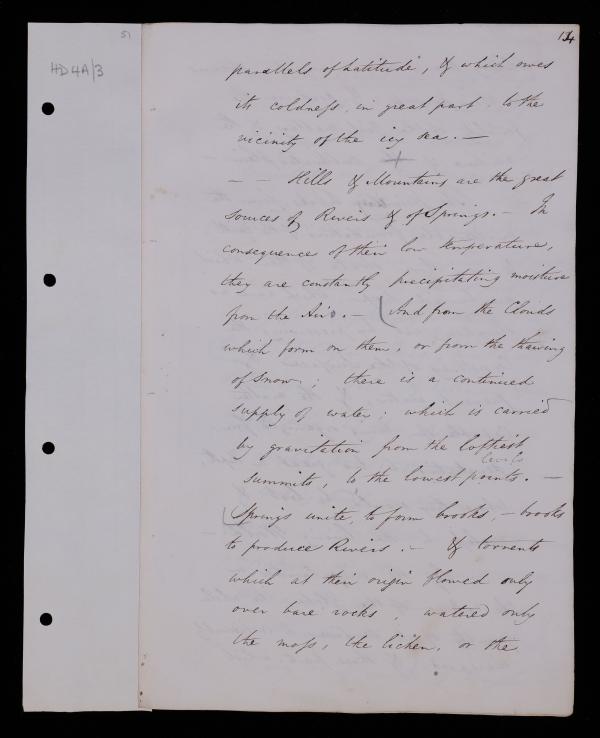 51
HD4A/3
134
parallels of Latitude, & which owes
its coldness in great part to the
vicinity of the icy sea. —
+
— — Hills & Mountains are the great
sources of Rivers & of Springs. — In
consequence of their low temperature,
they are constantly precipitating moisture
from the Air. — (And from the Clouds
which form on them, or from the thawing
of Snow; there is a continued
supply of water; which is carried
by gravitation from the loftiest
levels
summits, to the lowest points. —
(Springs unite, to form brooks, — brooks
to produce Rivers. — & torrents
which at their origin flowed only
over bare rocks, watered only
the moss, the lichen, or the